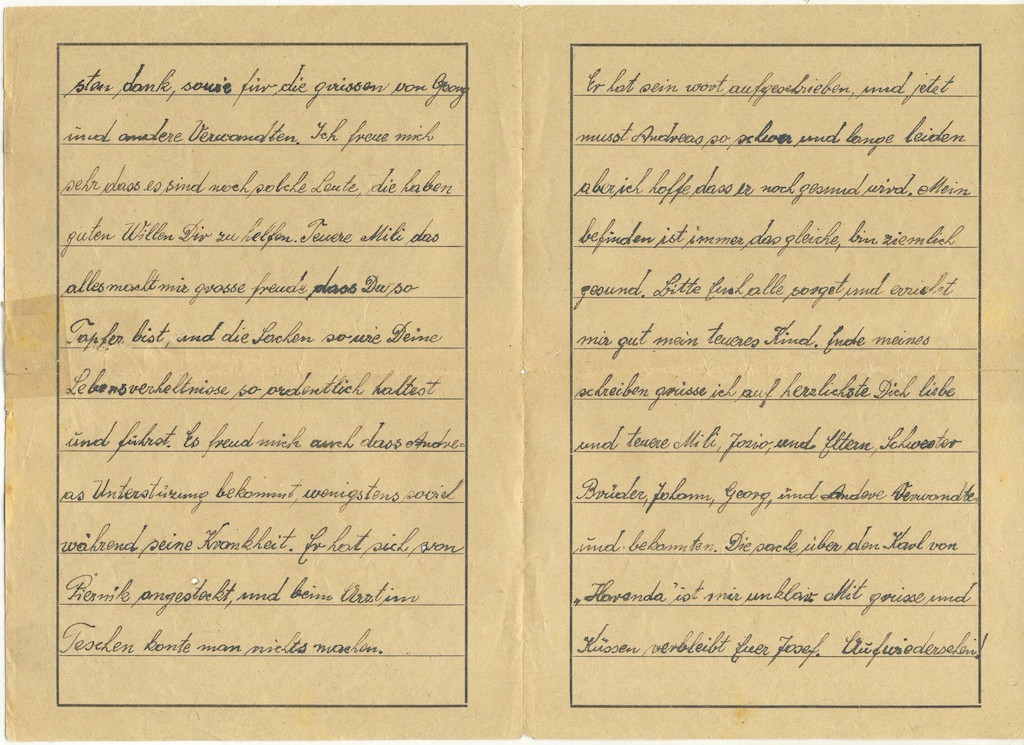 sten dank, sowie für die grüssen von Georg
und andere Verwandten. Ich freue mich
sehr dass es sind noch solche Leute, die haben
guten Willen Dir zu helfen. Teuere Mili das
alles macht mir grosse freude dass Du so
Tapfer bist, und die Sachen sowie Deine
Lebensverheltnisse so ordentlich haltest
und führst. Es freud mich auch dass Andre-
as Unterstüzung bekommt, wenigstens soviel
während seine Krankheit. Er hat sich von
Piernik angesteckt, und beim Arzt im
Teschen konte man nichts machen.
Er hat sein wort aufgeschrieben, und jetzt
musst Andreas so schwer und lange leiden
aber ich hoffe, dass er noch gesund wird. Mein
befinden ist immer das gleiche, bin ziemlich
gesund. Bitte Euch alle, sorget und erzieht
mir gut mein teueres Kind. Ende meines
schreiben grüsse ich auf herzlichste Dich liebe
und teuere Mili, Jozio, und Eltern, Schwester
Brüder, Johann, Georg, und Andere Verwandte
und bekannten. Die sache über den Karl von
„Harenda" ist mir unklar. Mit grüsse und
Küssen verbleibt Euer Josef. Aufwiedersehen!